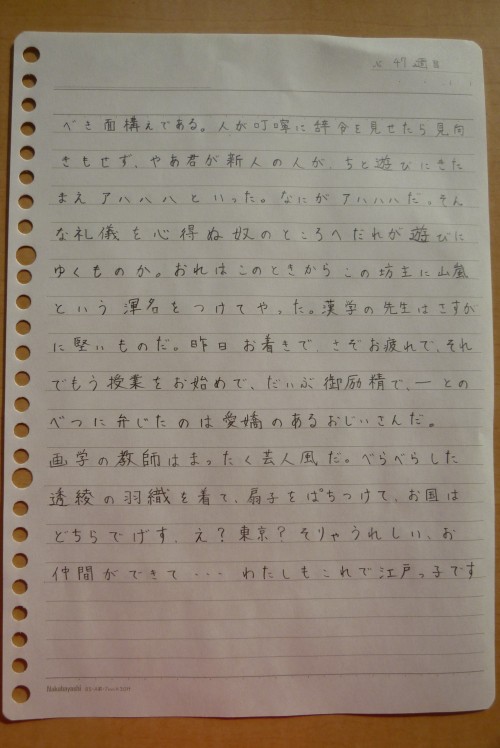 47週目
べき面構えである。人が叮嚀に辞令を見せたら見向
きもせず、やあ君が新人の人が、ちと遊びにきた
まえアハハハといった。なにがアハハハだ。そん
な礼儀を心得ぬ奴のところへだれが遊びに
ゆくものか。おれはこのときからこの坊主に山嵐
という渾名をつけてやった。漢学の先生はさすが
に堅いものだ。昨日お着きで、さぞお疲れで、それ
でもう授業をお始めで、だいぶ御励精で、一との
べつに弁じたのは愛嬌のあるおじいさんだ。
画学の教師はまったく芸人風だ。べらべらした
透綾の羽織を着て、扇子をぱちつけて、お国は
どちらでげす、え?東京?そりゃうれしい、お
仲間ができて・・・わたしもこれで江戸っ子です